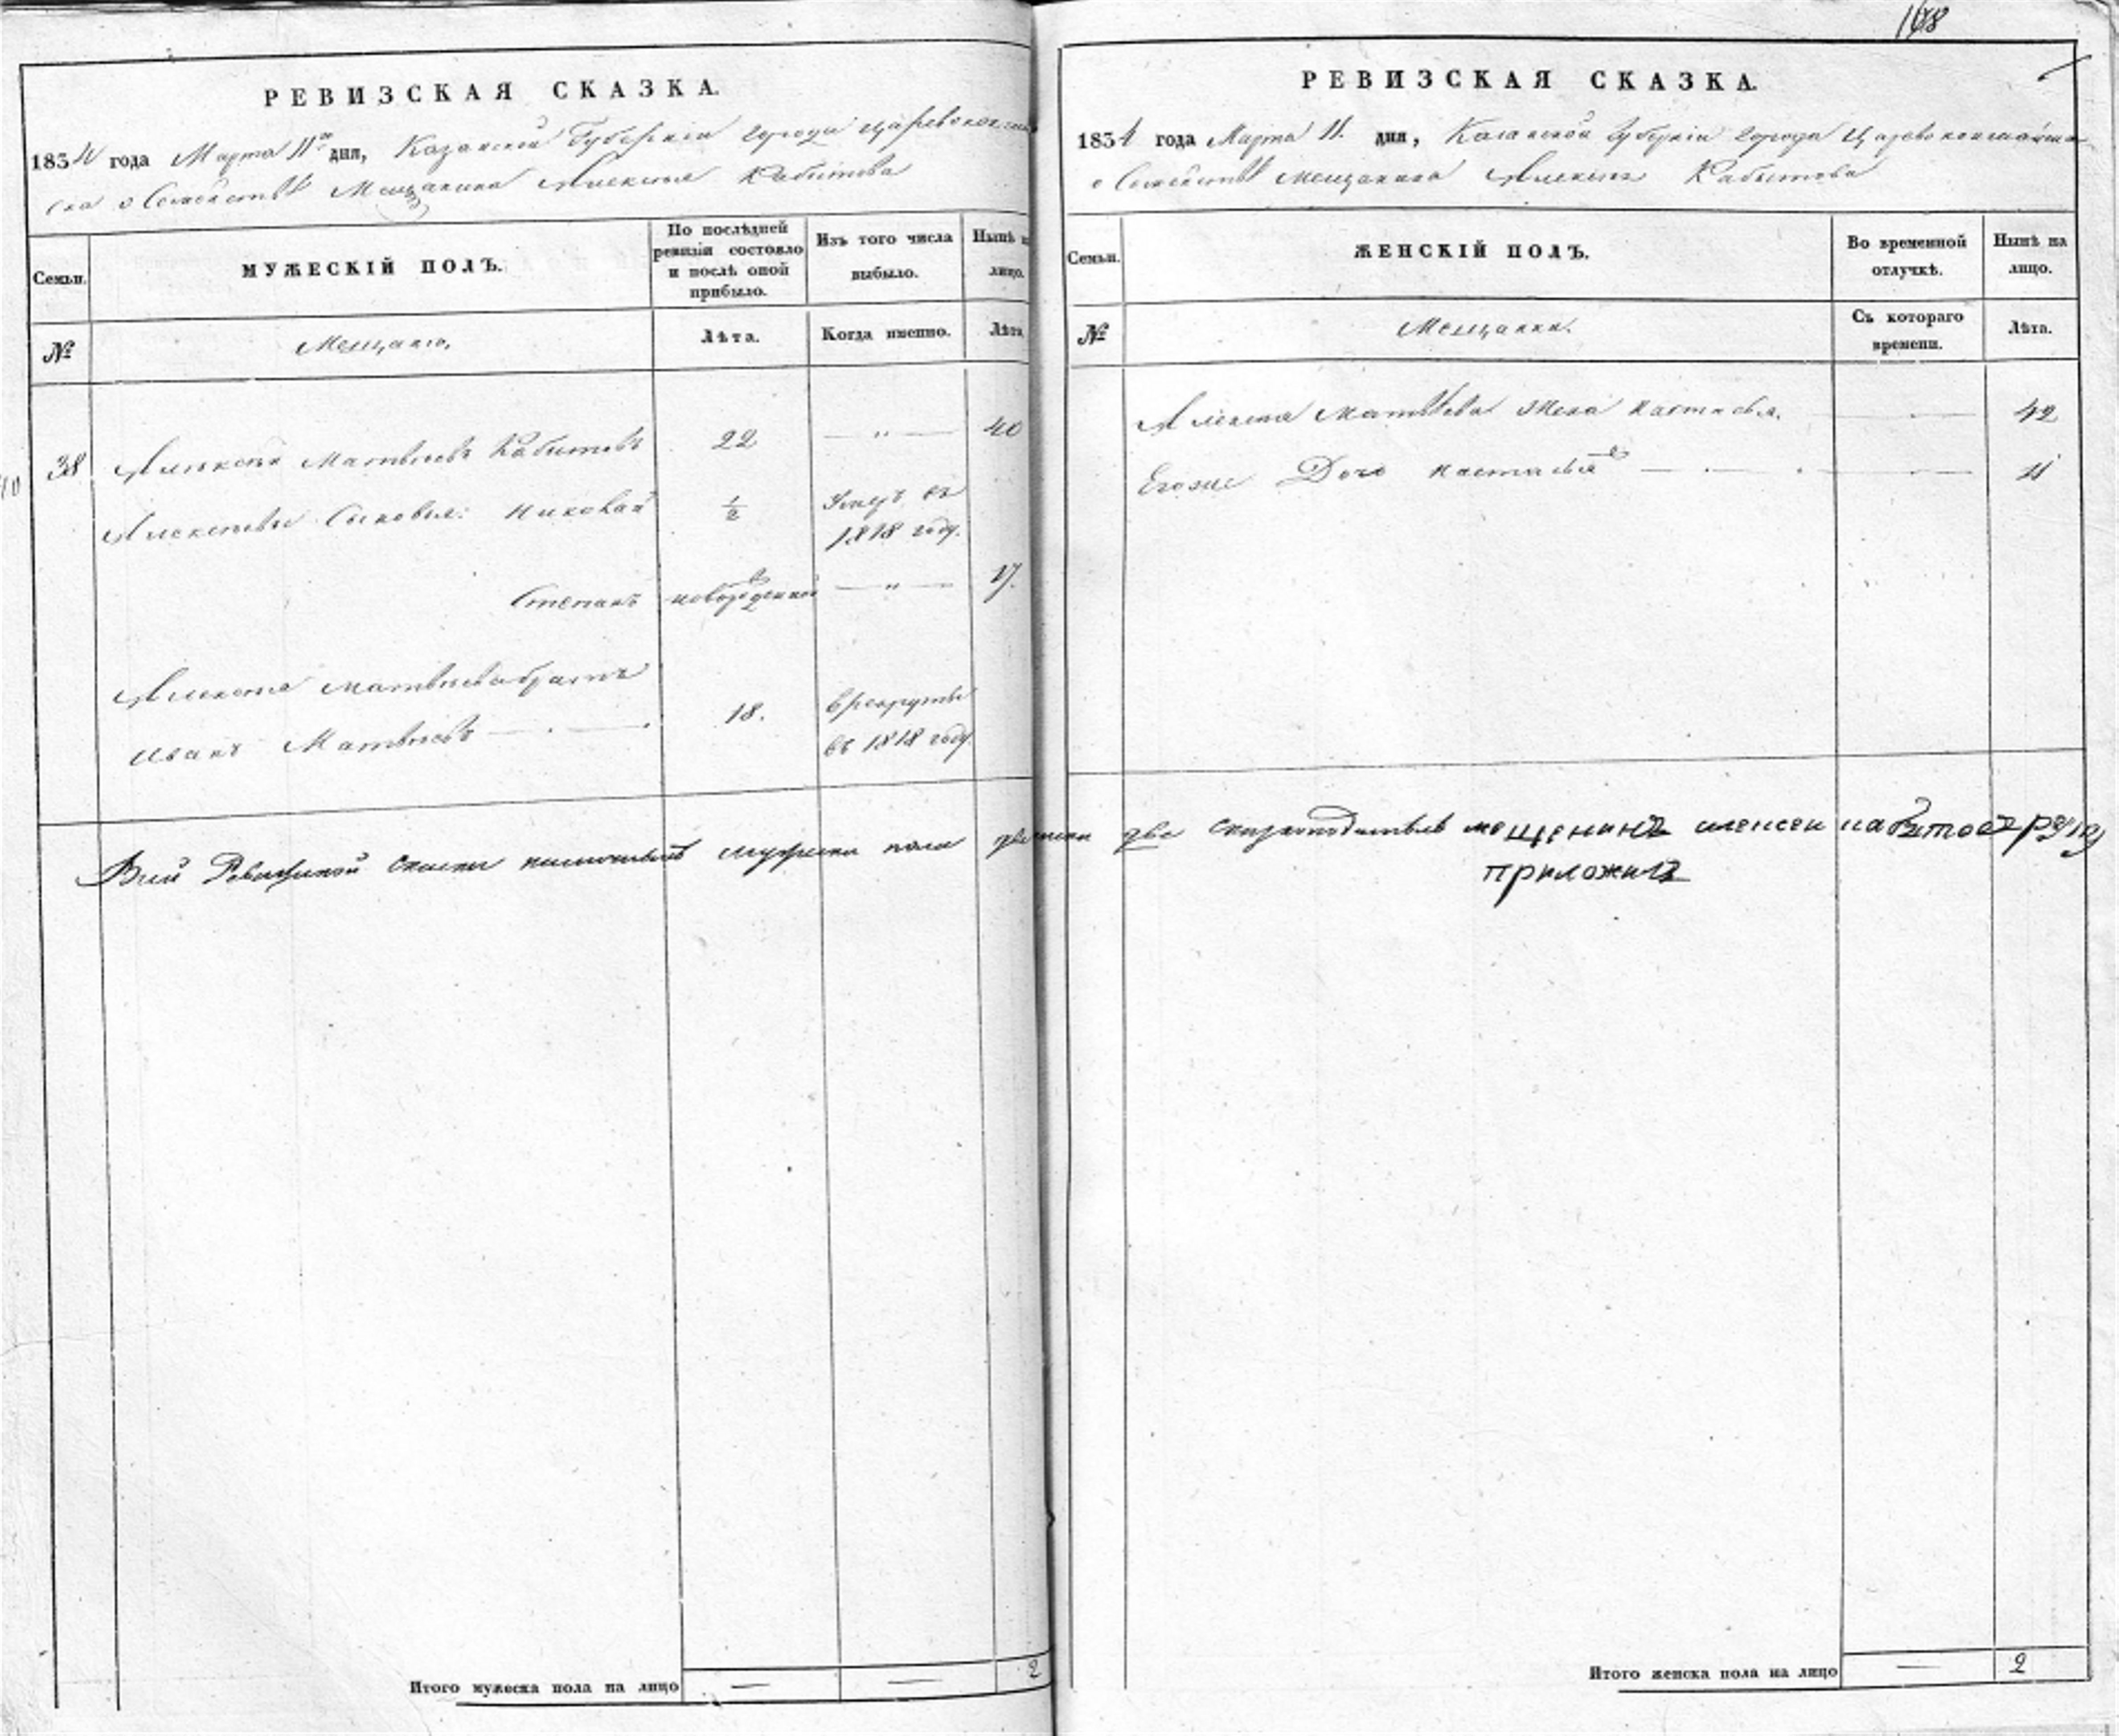 РЕВИЗСКАЯ СКАЗКА.
1834 года Марта 11го дня, Казанской Губернiи города Царевококшай
ска о Семействѣ Мещанина Алексѣя Кабитова
Семьи.
МУЖЕСКIЙ ПОЛЪ.
По послѣдней ревизiи состояло и послѣ оной прибыло.
Изъ того числа выбыло.
Нынѣ на лицо.
№
Мещане.
Лѣта.
Когда именно.
Лѣта
38 Алексѣй Матвѣевъ Кабитовъ 22 — " — 40
Алексѣевы Сыновья: Николай ½ Умеръ въ 1818 году.
Степанъ новорожденной — " — 17.
Алексѣя Матвѣева братъ
Иванъ Матвѣевъ 18. в рекруты въ 1818 году.
Итого мужеска пола на лицо — — 2
168
РЕВИЗСКАЯ СКАЗКА.
1834 года Марта 11. дня, Казанской Губернiи города Царевококшайска
о Семействѣ мещанина Алексѣя Кабитова
Семьи.
ЖЕНСКIЙ ПОЛЪ.
Во временной отлучкѣ.
Нынѣ на лицо.
№
Мещанки.
Съ котораго времени.
Лѣта.
Алексѣя Матвѣева жена Настасья. 42
Егоже Дочь Настасья 11
Всей Ревизской скаски мужеска пола две мещенинъ алексеи кабитовъ руку
приложилъ
Итого женска пола на лицо — 2